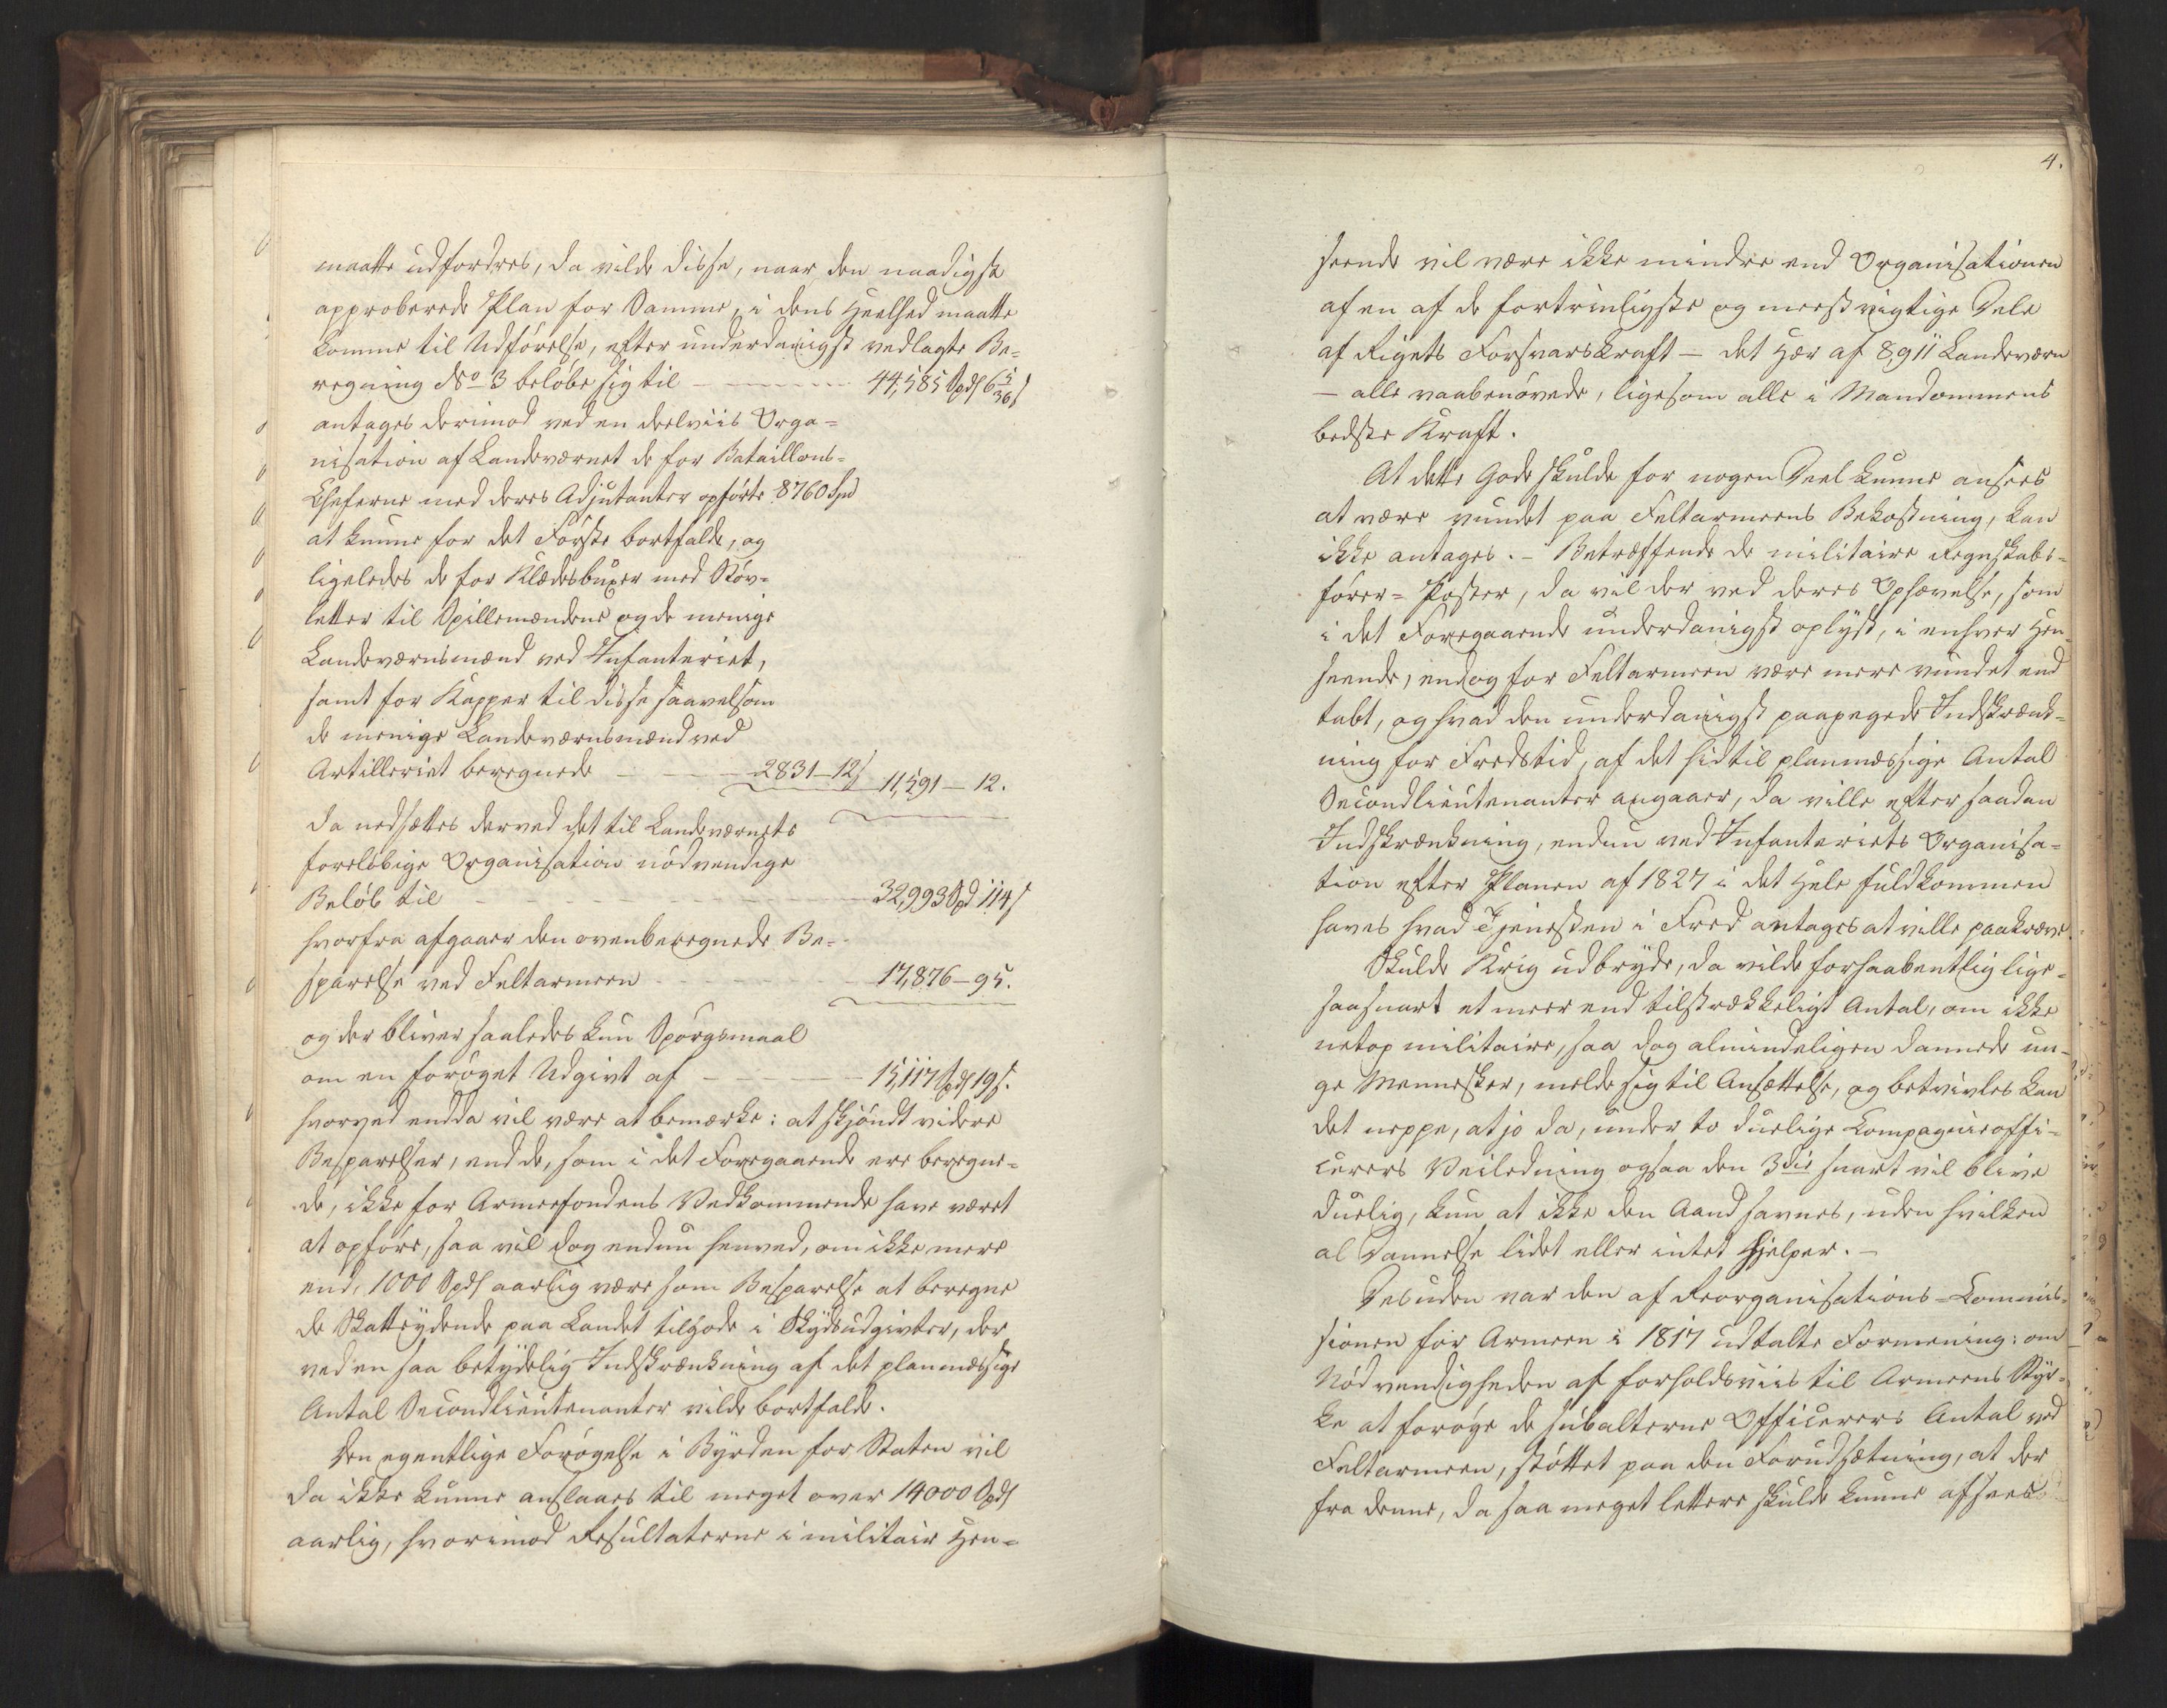 maatte udfordres, da vilde disse, naar den naadigst
approberede Plan for Samme, i dens Heelhed maatte
komme til Udførelse, efter underdanigst vedlagte Be=
regning No 3 beløbe sig til - - - - 44,585 Spds 6 5/36 s
antages derimod ved en deelviis Orga=
nisation af Landeværnet de for Bataillons=
Cheferne med deres Adjutanter opførte 8760 Spd
at kunne for det Første bortfalde, og
ligeledes de for Klædesbuxer med Støv=
letter til Spillemændene og de menige
Landeværnsmænd ved Infanteriet,
samt for Kapper til disse saavelsom
de menige Landeværnsmænd ved
Artilleriet beregnede - - - 2831 - 12 s 11,591 - 12.
da nedsættes derved det til Landeværnets
foreløbige Organisation nødvendige
Beløb til - - - - 32,993 Spd 114 s
hvorfra afgaaer den ovenberegnede Be=
sparelse ved Feltarmeen - - - - 17,876 - 95.
og der bliver saaledes kun Spørgsmaal
om en forøget Udgivt af - - - - 15,117 Spds 19 s.
hvorved endda vil være at bemærke: at skjøndt videre
Besparelser, end de, som i det Foregaaende ere beregne=
de, ikke for Armeefondens Vedkommende have været
at opføre, saa vil dog endnu henved, om ikke mere
end, 1000 Spds aarlig være som Besparelse at beregne
de Skatteydende paa Landet tilgode i Skydsudgivter, der
ved en saa betydelig Indskrænkning af det planmæssige
Antal Secondlieutenanter vilde bortfalde.
Den egentlige Forøgelse i Byrden for Staten vil
da ikke kunne anslaaes til meget over 14000 Spds
aarlig, hvorimod Resultaterne i militair Hen=
4.
seende vil være ikke mindre end Organisationen
af en af de fortrinligste og meest vigtige Dele
af Rigets Forsvarskraft - det Hær af 8,911 Landeværn
- alle vaabenøvede, ligesom alle i Mandommens
bedste Kraft.
At dette Gode skulde for nogen Deel kunne ansees
at være vundet paa Feltarmeens Bekostning, kan
ikke antages. - Betræffende de militaire Regnskabs=
fører= Poster, da vil der ved deres Ophævelse, som
i det Foregaaende underdanigst oplyst, i enhver Hen=
seende, endog for Feltarmeen være mere vundet end
tabt, og hvad den underdanigst paapegede Indskrænk=
ning for Fredstid, af det hidtil planmæssige Antal
Secondlieutenanter angaaer, da ville efter saadan
Indskrænkning, endnu ved Infanteriets Organisa=
tion efter Planen af 1827 i det Hele fuldkommen
haves hvad Tjenesten i Fred antages at ville paakræve.
Skulde Krig udbryde, da vilde forhaabentlig lige=
saasnart et meer end tilstrækkeligt Antal, om ikke
netop militaire, saa dog almindeligen dannede un=
ge Mennesker, melde sig til Ansættelse, og betvivles kan
det neppe, at jo da, under to duelige Compagnieoffi=
cerers Veiledning ogsaa den 3die snart vil blive
duelig, kun at ikke den Aand savnes, uden hvilken
al Dannelse lidet eller intet hjelper. -
Desuden var den af Reorganisations=Commis=
sionen for Armeen i 1817 udtalte Formening: om
Nødvendigheden af forholdsviis til Armeens Styr=
ke at forøge de subalterne Officerers Antal ved
Feltarmeen, støttet paa den Forudsætning, at der
fra denne, da saa meget lettere skulde kunne afsees